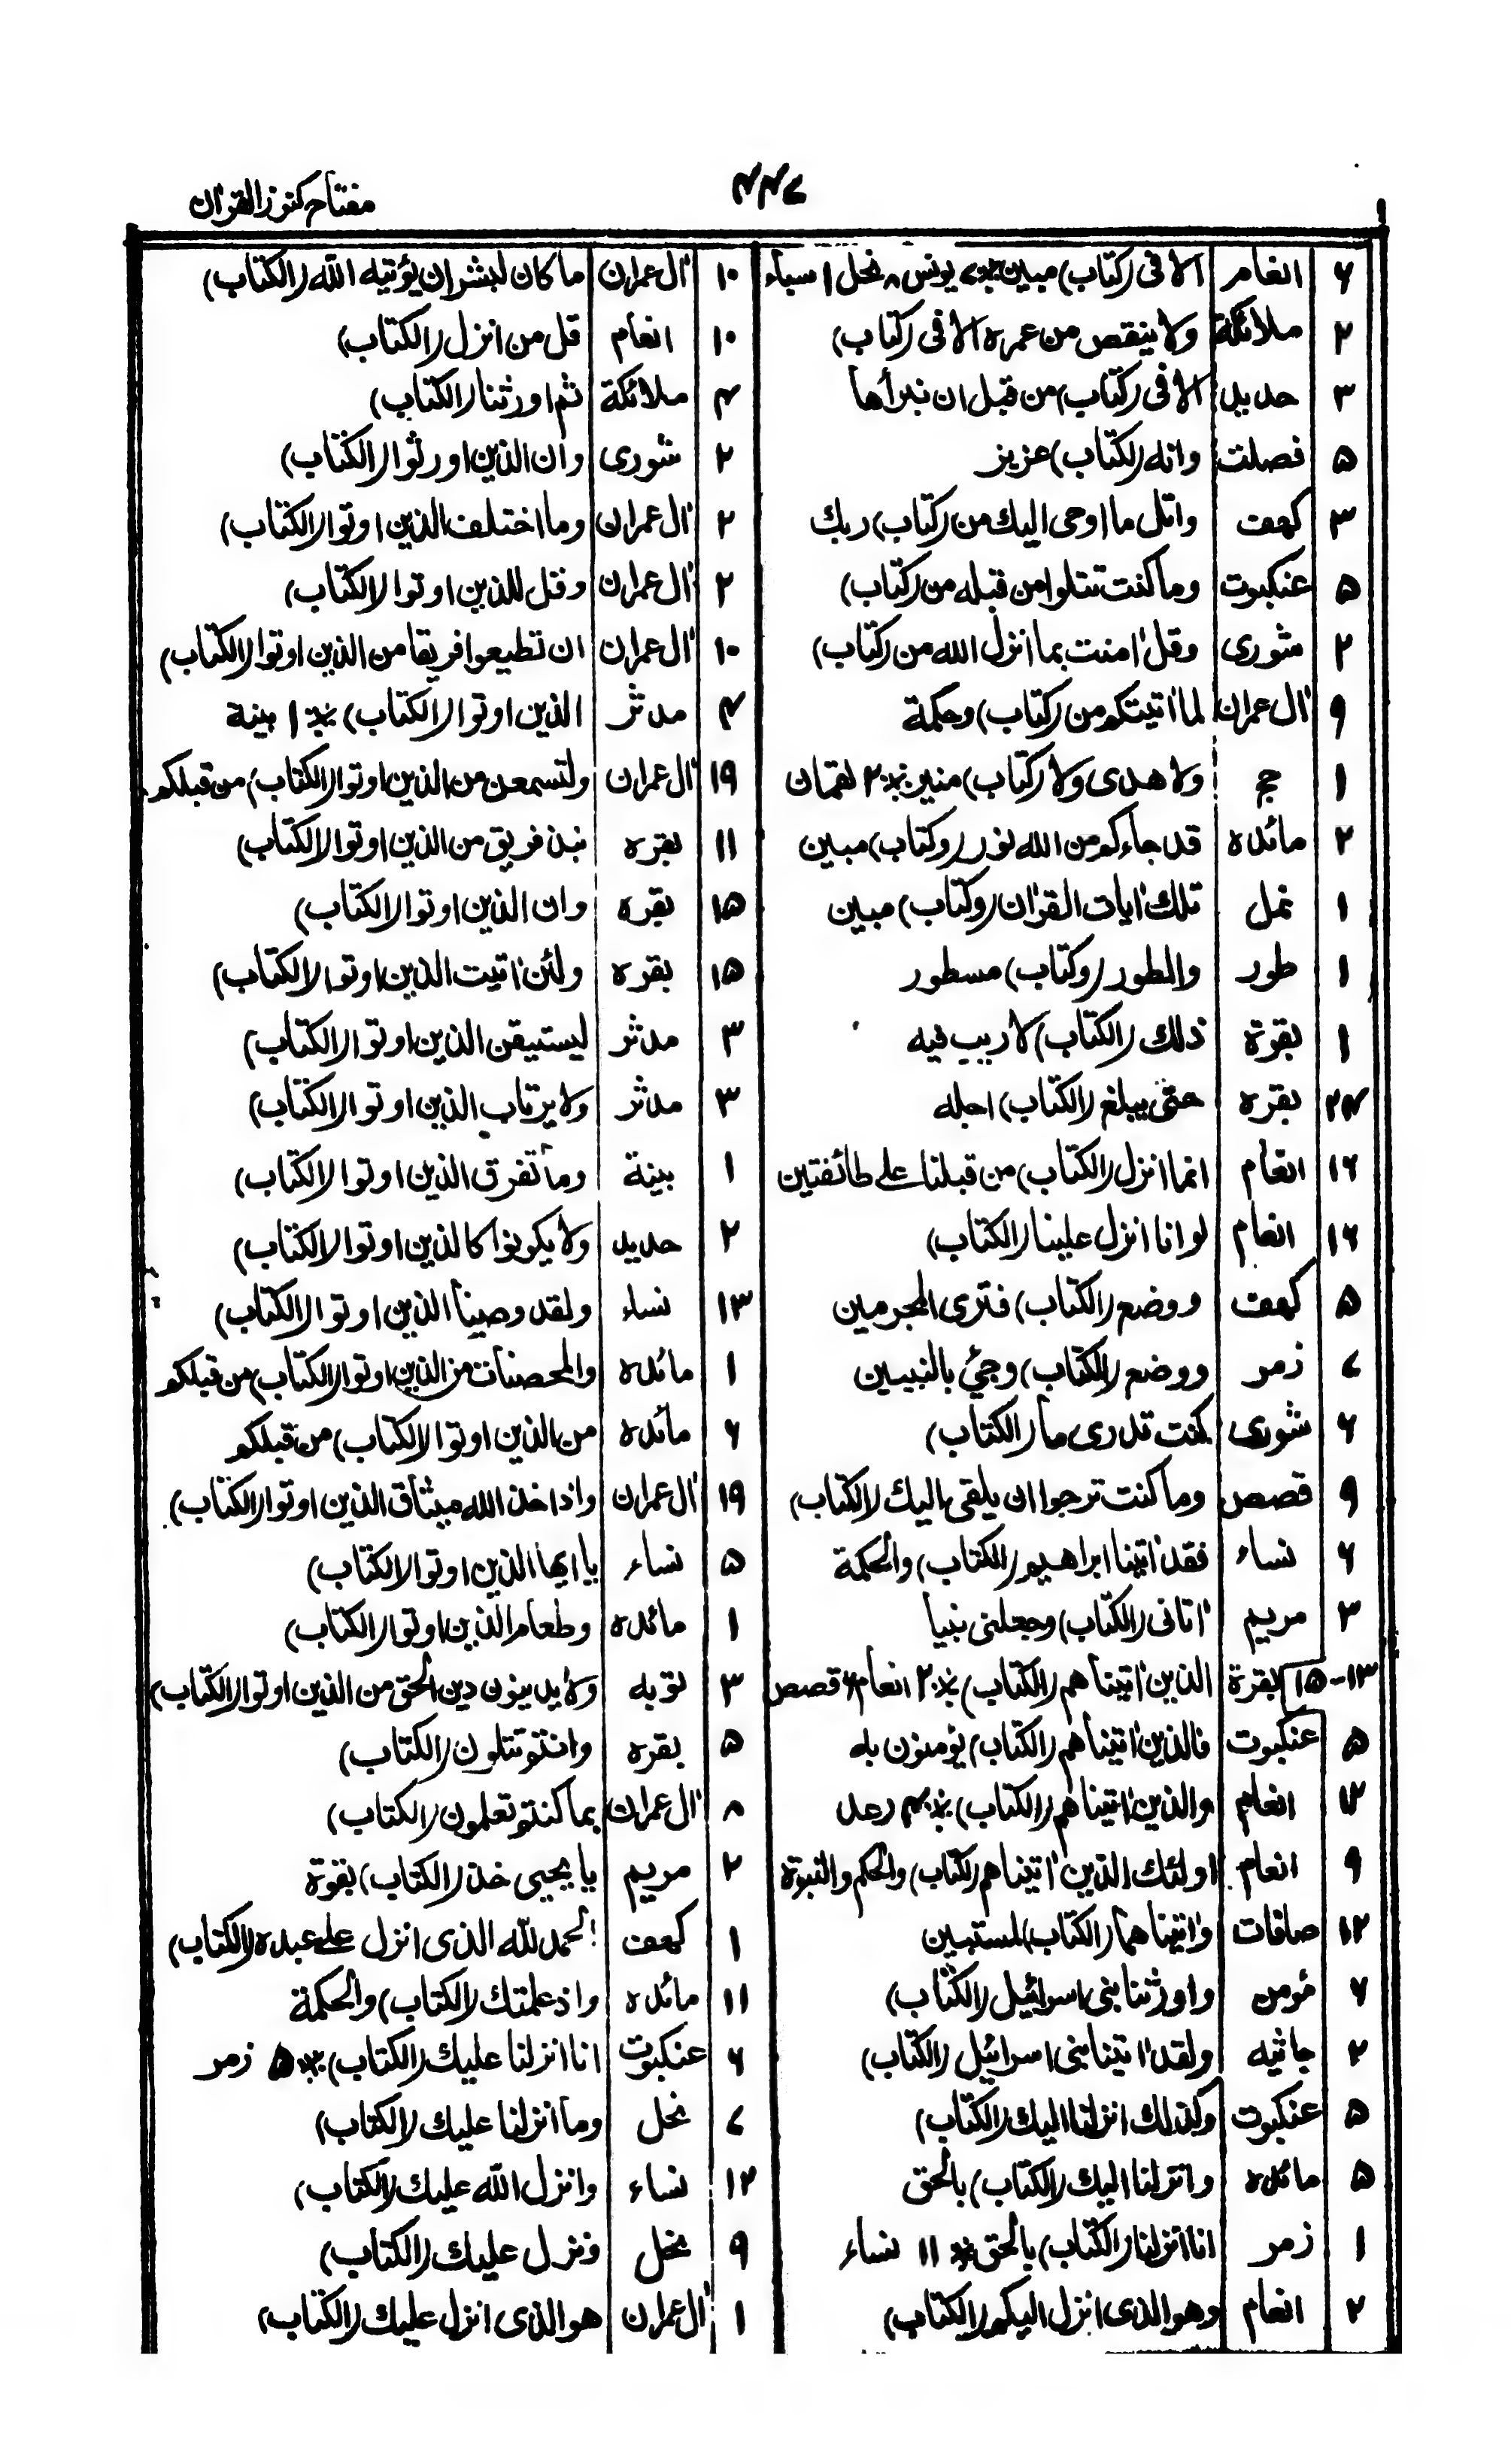 مفتاح کنوز القران
۴۴۷
۶ انعام الا فی (کتاب) مبین ※ ۷ یونس ۸ نحل ۱ سباء
۲ ملائکة ولا ینقص من عمره الا فی (کتاب)
۳ حدید الا فی (کتاب) من قبل ان نبرأها
۵ فصلت وانه (لکتاب) عزیز
۳ کهف واتل ما اوحی الیك من (کتاب) ربك
۵ عنکبوت وما کنت تتلوا من قبله من (کتاب)
۲ شوری وقل اٰمنت بما انزل الله من (کتاب)
۹ اٰل عمران لما اٰتیتکم من (کتاب) وحکمة
۱ حج ولا هدی ولا (کتاب) منیر ※ ۲ لقمان
۲ مائده قد جاءکم من الله نور (وکتاب) مبین
۱ نمل تلك اٰیات القراٰن (وکتاب) مبین
۱ طور والطور (وکتاب) مسطور
۱ بقرة ذلك (الکتاب) لا ریب فیه
بقره حتی یبلغ (الکتاب) اجله
۱۶ انعام انما انزل (الکتاب) من قبلنا علی طائفتین
۱۶ انعام لو انا انزل علینا (الکتاب)
۵ کهف ووضع (الکتاب) فتری المجرمین
۷ زمر ووضع (الکتاب) وجئ بالنبیین
۶ شوری کنت تدری ما (الکتاب)
۹ قصص وما کنت ترجوا ان یلقی الیك (الکتاب)
۶ نساء فقد اٰتینا ابراهیم (الکتاب) والحکمة
۳ مریم اٰتانی (الکتاب) وجعلنی نبیا
۱۳-۱۵ بقرة الذین اٰتیناهم (الکتاب) ※ ۲ انعام ۶ قصص
۵ عنکبوت فالذین اٰتیناهم (الکتاب) یؤمنون به
انعام والذین اٰتیناهم (الکتاب) ※ ۴ رعد
۹ انعام اولئك الذین اٰتیناهم (الکتاب) والحکم والنبوة
۱۲ صافات واٰتیناهما (الکتاب) المستبین
۶ مؤمن واورثنا بنی اسرائیل (الکتاب)
۲ جاثیه ولقد اٰتینا بنی اسرائیل (الکتاب)
۵ عنکبوت وکذلك انزلنا الیك (الکتاب)
۵ مائده وانزلنا الیك (الکتاب) بالحق
۱ زمر انا انزلنا (الکتاب) بالحق ※ ۱۱ نساء
۲ انعام وهو الذی انزل الیکم (الکتاب)
۱۰ اٰل عمران ما کان لبشر ان یؤتیه الله (الکتاب)
۱۰ انعام قل من انزل (الکتاب)
۴ ملائکة ثم اورثنا (الکتاب)
۲ شوری وان الذین اورثوا (الکتاب)
۲ اٰل عمران وما اختلف الذین اوتوا (الکتاب)
۲ اٰل عمران وقل للذین اوتوا (الکتاب)
۱۰ اٰل عمران ان تطیعوا فریقا من الذین اوتوا (الکتاب)
۴ مدثر الذین اوتوا (الکتاب) ※ ۱ بینة
۱۹ اٰل عمران ولتسمعن من الذین اوتوا (الکتاب) من قبلکم
۱۱ بقره نبذ فریق من الذین اوتوا (الکتاب)
۱۵ بقره وان الذین اوتوا (الکتاب)
۱۵ بقره ولئن اٰتیت الذین اوتوا (الکتاب)
۳ مدثر لیستیقن الذین اوتوا (الکتاب)
۳ مدثر ولا یرتاب الذین اوتوا (الکتاب)
۱ بینة وما تفرق الذین اوتوا (الکتاب)
۲ حدید ولا یکونوا کالذین اوتوا (الکتاب)
۱۳ نساء ولقد وصینا الذین اوتوا (الکتاب)
۱ مائده والمحصنات من الذین اوتوا (الکتاب) من قبلکم
۶ مائده من الذین اوتوا (الکتاب) من قبلکم
۱۹ اٰل عمران واذ اخذ الله میثاق الذین اوتوا (الکتاب)
۵ نساء یا ایها الذین اوتوا (الکتاب)
۱ مائده وطعام الذین اوتوا (الکتاب)
۳ توبه ولا یدینون دین الحق من الذین اوتوا (الکتاب)
۵ بقره وانتم تتلون (الکتاب)
۸ اٰل عمران بما کنتم تعلمون (الکتاب)
۲ مریم یا یحیی خذ (الکتاب) بقوة
۱ کهف الحمد لله الذی انزل علی عبده (الکتاب)
۱۱ مائده واذ علمتك (الکتاب) والحکمة
۶ عنکبوت انا انزلنا علیك (الکتاب) ※ ۵ زمر
۷ نحل وما انزلنا علیك (الکتاب)
نساء وانزل الله علیك (الکتاب)
۹ نحل ونزل علیك (الکتاب)
۱ اٰل عمران هو الذی انزل علیك (الکتاب)